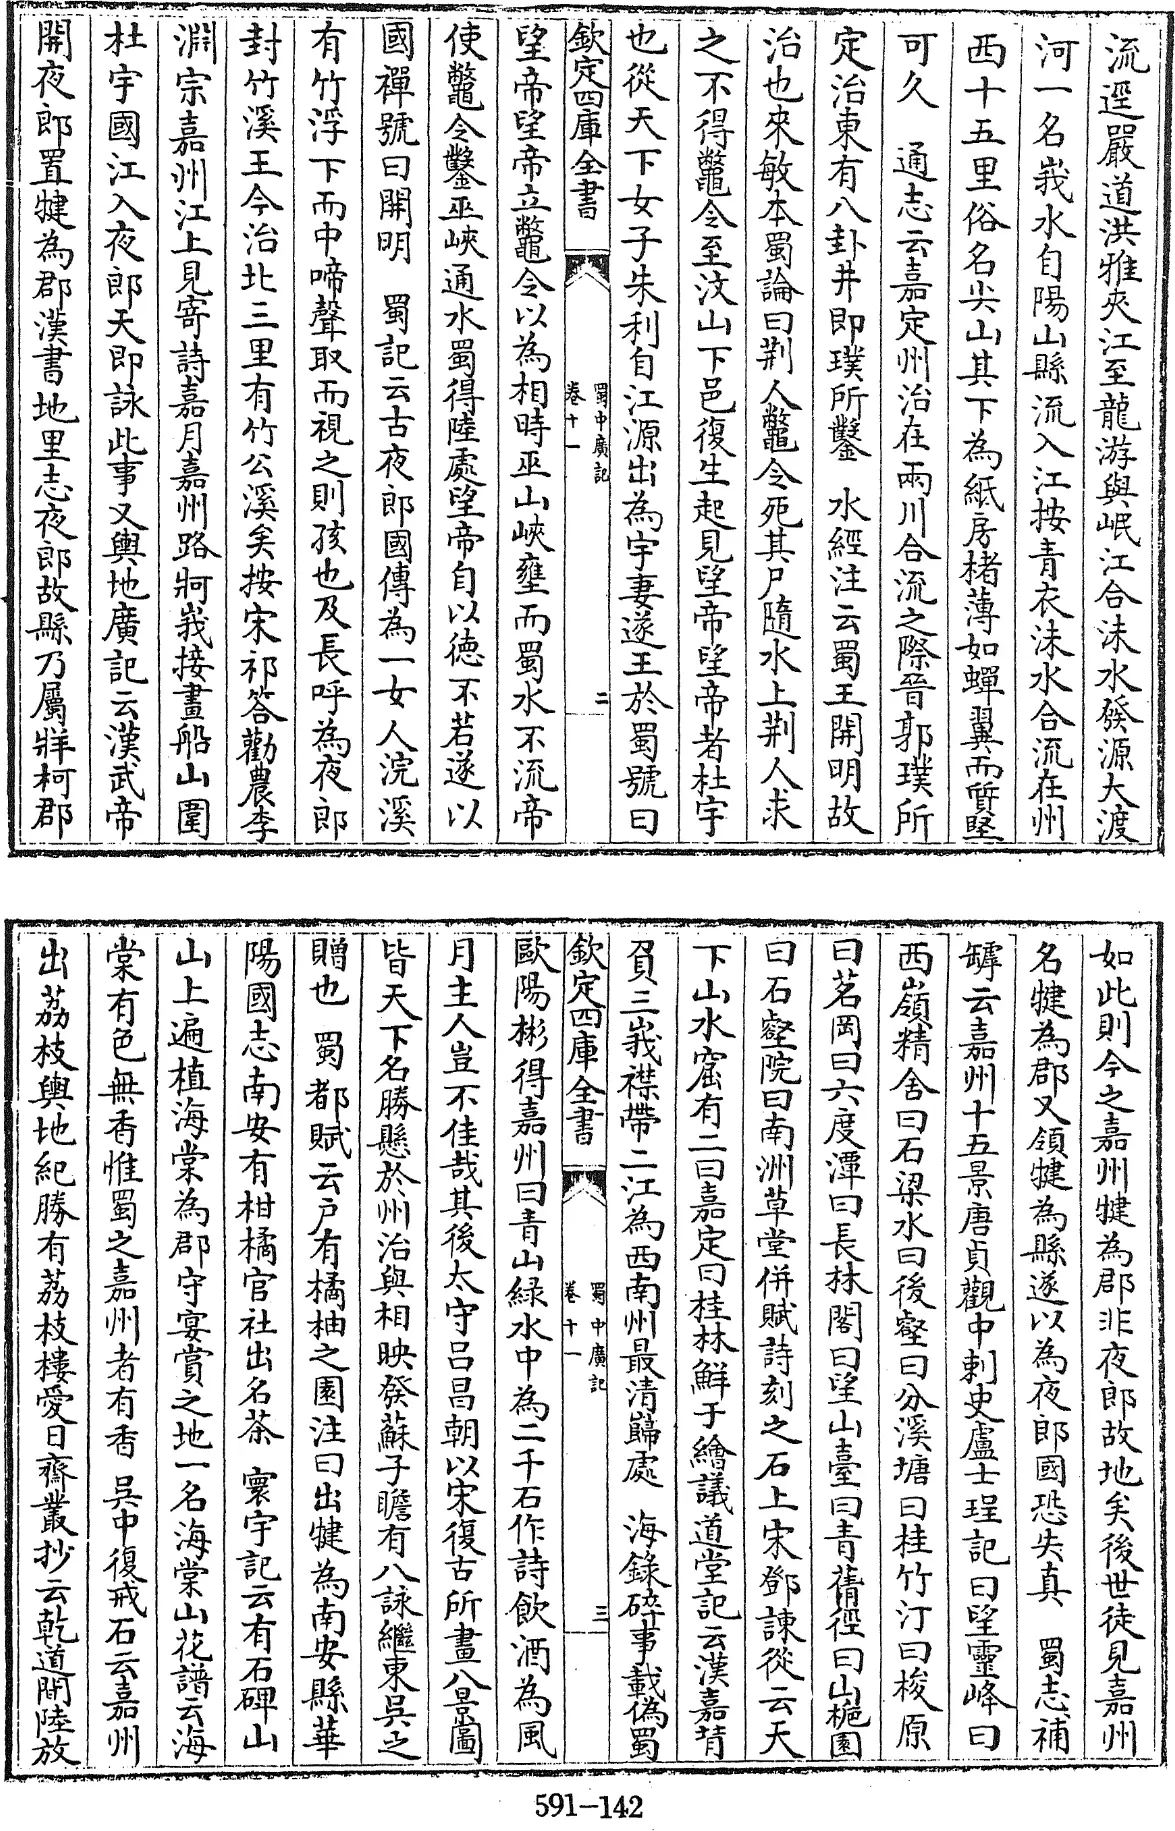 流逕嚴道洪雅夾江至龍游與岷江合沫水發源大渡
河一名峩水自陽山縣流入江按青衣沫水合流在州
西十五里俗名尖山其下為紙房楮薄如蟬翼而質堅
可久　通志云嘉定州治在兩川合流之際晉郭璞所
定治東有八卦井即璞所鑿　水經注云蜀王開明故
治也來敏本蜀論曰荆人鼈令死其尸隨水上荆人求
之不得鼈令至汶山下邑復生起見望帝望帝者杜宇
也從天下女子朱利自江源出為宇妻遂王於蜀號曰
欽定四庫全書
蜀中廣記
卷十一
二
望帝望帝立鼈令以為相時巫山峽壅而蜀水不流帝
使鼈令鑿巫峽通水蜀得陸處望帝自以德不若遂以
國禪號曰開明　蜀記云古夜郎國傳為一女人浣溪
有竹浮下而中啼聲取而視之則孩也及長呼為夜郎
封竹溪王今治北三里有竹公溪矣按宋祁答勸農李
淵宗嘉州江上見寄詩嘉月嘉州路牁峩接畫船山圍
杜宇國江入夜郎天即詠此事又輿地廣記云漢武帝
開夜郎置犍為郡漢書地里志夜郎故縣乃屬牂柯郡
如此則今之嘉州犍為郡非夜郎故地矣後世徒見嘉州
名犍為郡又領犍為縣遂以為夜郎國恐失真　蜀志補
罅云嘉州十五景唐貞觀中刺史盧士珵記曰望靈峰曰
西嶺精舍曰石梁水曰後壑曰分溪塘曰桂竹汀曰梭原
曰茗岡曰六度潭曰長林閣曰望山臺曰青蒨徑曰山梔園
曰石壑院曰南洲草堂併賦詩刻之石上宋鄧諫從云天
下山水窟有二曰嘉定曰桂林鮮于繪議道堂記云漢嘉背
負三峩襟帶二江為西南州最清巋處　海錄碎事載偽蜀
欽定四庫全書
蜀中廣記
卷十一
三
歐陽彬得嘉州曰青山緑水中為二千石作詩飲酒為風
月主人豈不佳哉其後太守呂昌朝以宋復古所畫八景圖
皆天下名勝懸於州治與相映發蘇子瞻有八詠繼東吳之
贈也　蜀都賦云户有橘柚之園注曰出犍為南安縣華
陽國志南安有柑橘官社出名茶　寰宇記云有石碑山
山上遍植海棠為郡守宴賞之地一名海棠山花譜云海
棠有色無香惟蜀之嘉州者有香　吳中復戒石云嘉州
出荔枝輿地紀勝有荔枝樓愛日齋叢抄云乾道間陸放
591-142